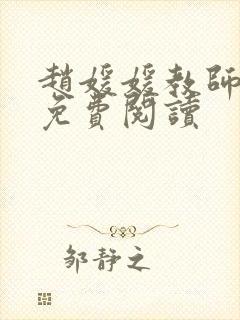 趙媛媛教師
免費閱讀
邹静之